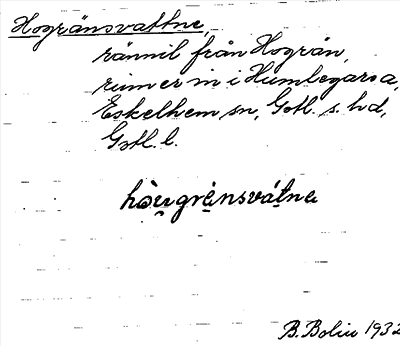 Hogränsvattne,
rännil från Hogrän,
rinner in i Humlegårda,
Eskelhem sn, Gotl. s. hd,
Gotl. l.
hòu̯grä̀nsvátnə
B. Bolin 1932